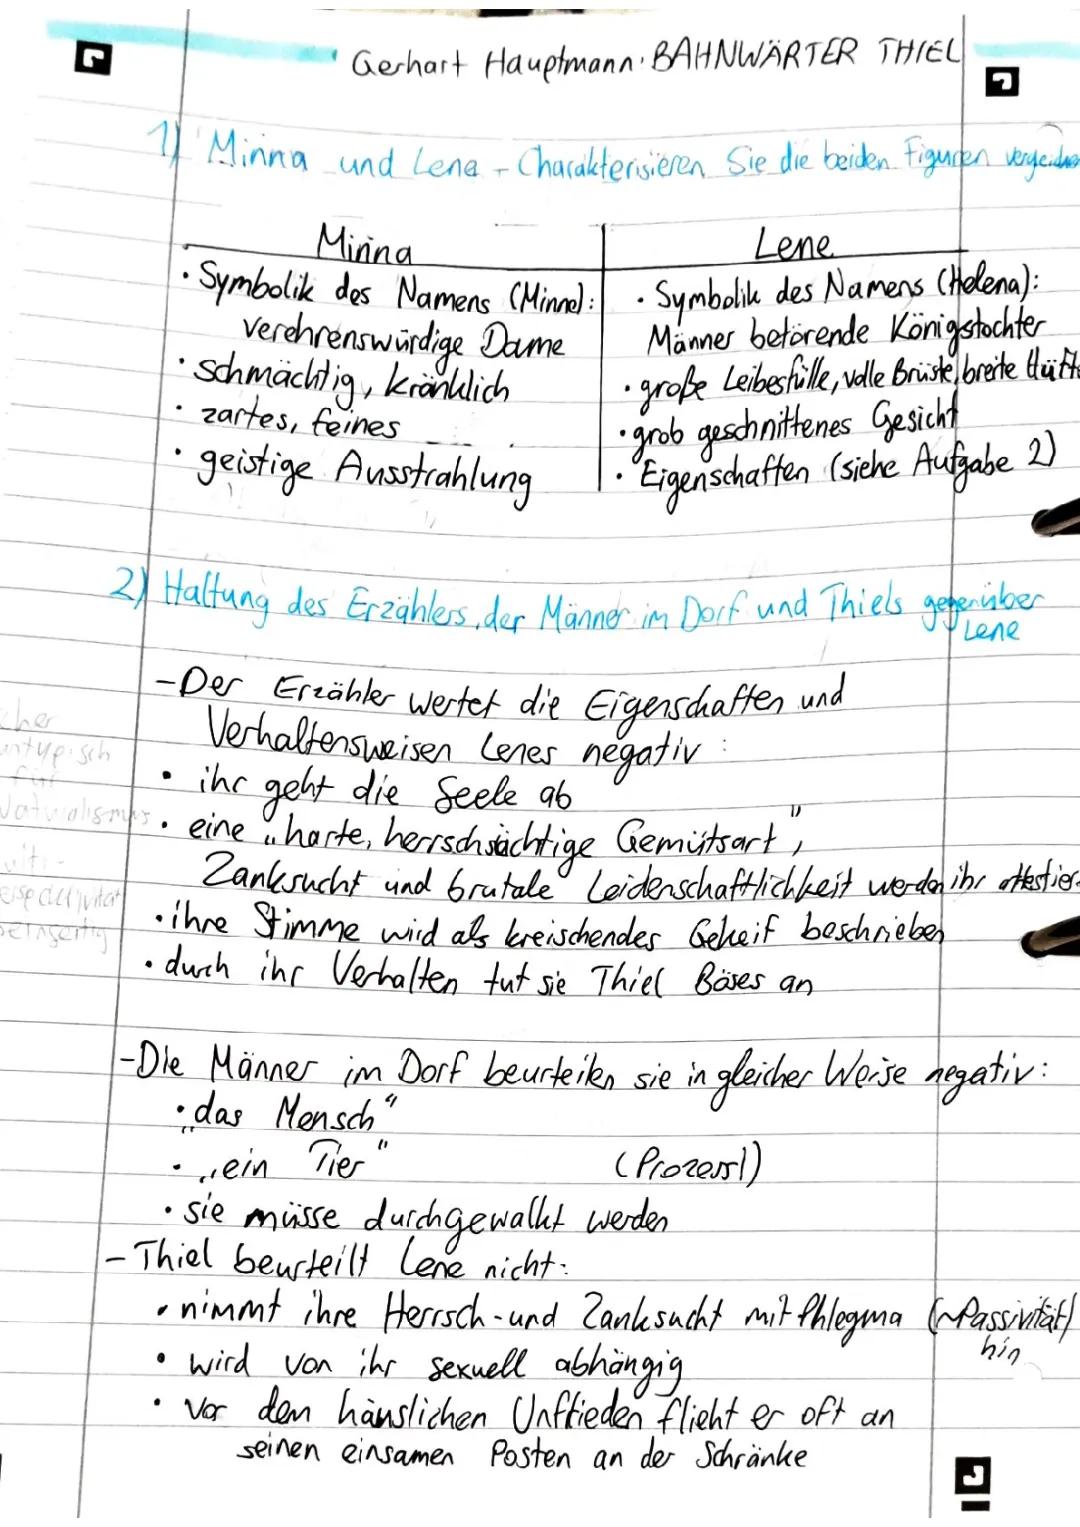 Gerhart Hauptmann: BAHNWÄRTER THIEL
1) Minna und Lena - Charakterisieren Sie die beiden Figuren
Minna
Lene
• Symbolik des Namens (Minne):
verehrenswürdige Dame
• schmächtig, kränklich
• zartes, feines
• geistige Ausstrahlung
• Symbolik des Namens (Helena):
Männer betörende Königstochter
• große Leibesfülle, volle Brüste, breite Hüfte
• grob geschnittenes Gesicht
• Eigenschaften (siehe Aufgabe 2)
2) Haltung des Erzählers, der Männer im Dorf und Thiels gegenüber
Lene
- Der Erzähler wertet die Eigenschaften und
Verhaltensweisen Lenes negativ:
• ihr geht die Seele ab
• eine "harte, herrschsüchtige Gemütsart",
Zanksucht und brutale Leidenschaftlichkeit werden ihr attestier
• ihre Stimme wird als kreischendes Gekeif beschrieben
• durch ihr Verhalten tut sie Thiel Böses an
untypisch
für
Naturalismus
- Die Männer im Dorf beurteilen sie in gleicher Weise negativ:
• "das Mensch"
• "ein Tier" (Prozess!)
• sie müsse durchgewalkt werden
- Thiel beurteilt Lene nicht:
• nimmt ihre Herrsch- und Zanksucht mit Phlegma (~Passivität)
hin
• wird von ihr sexuell abhängig
• vor dem häuslichen Unfrieden flieht er oft an
seinen einsamen Posten an der Schränke